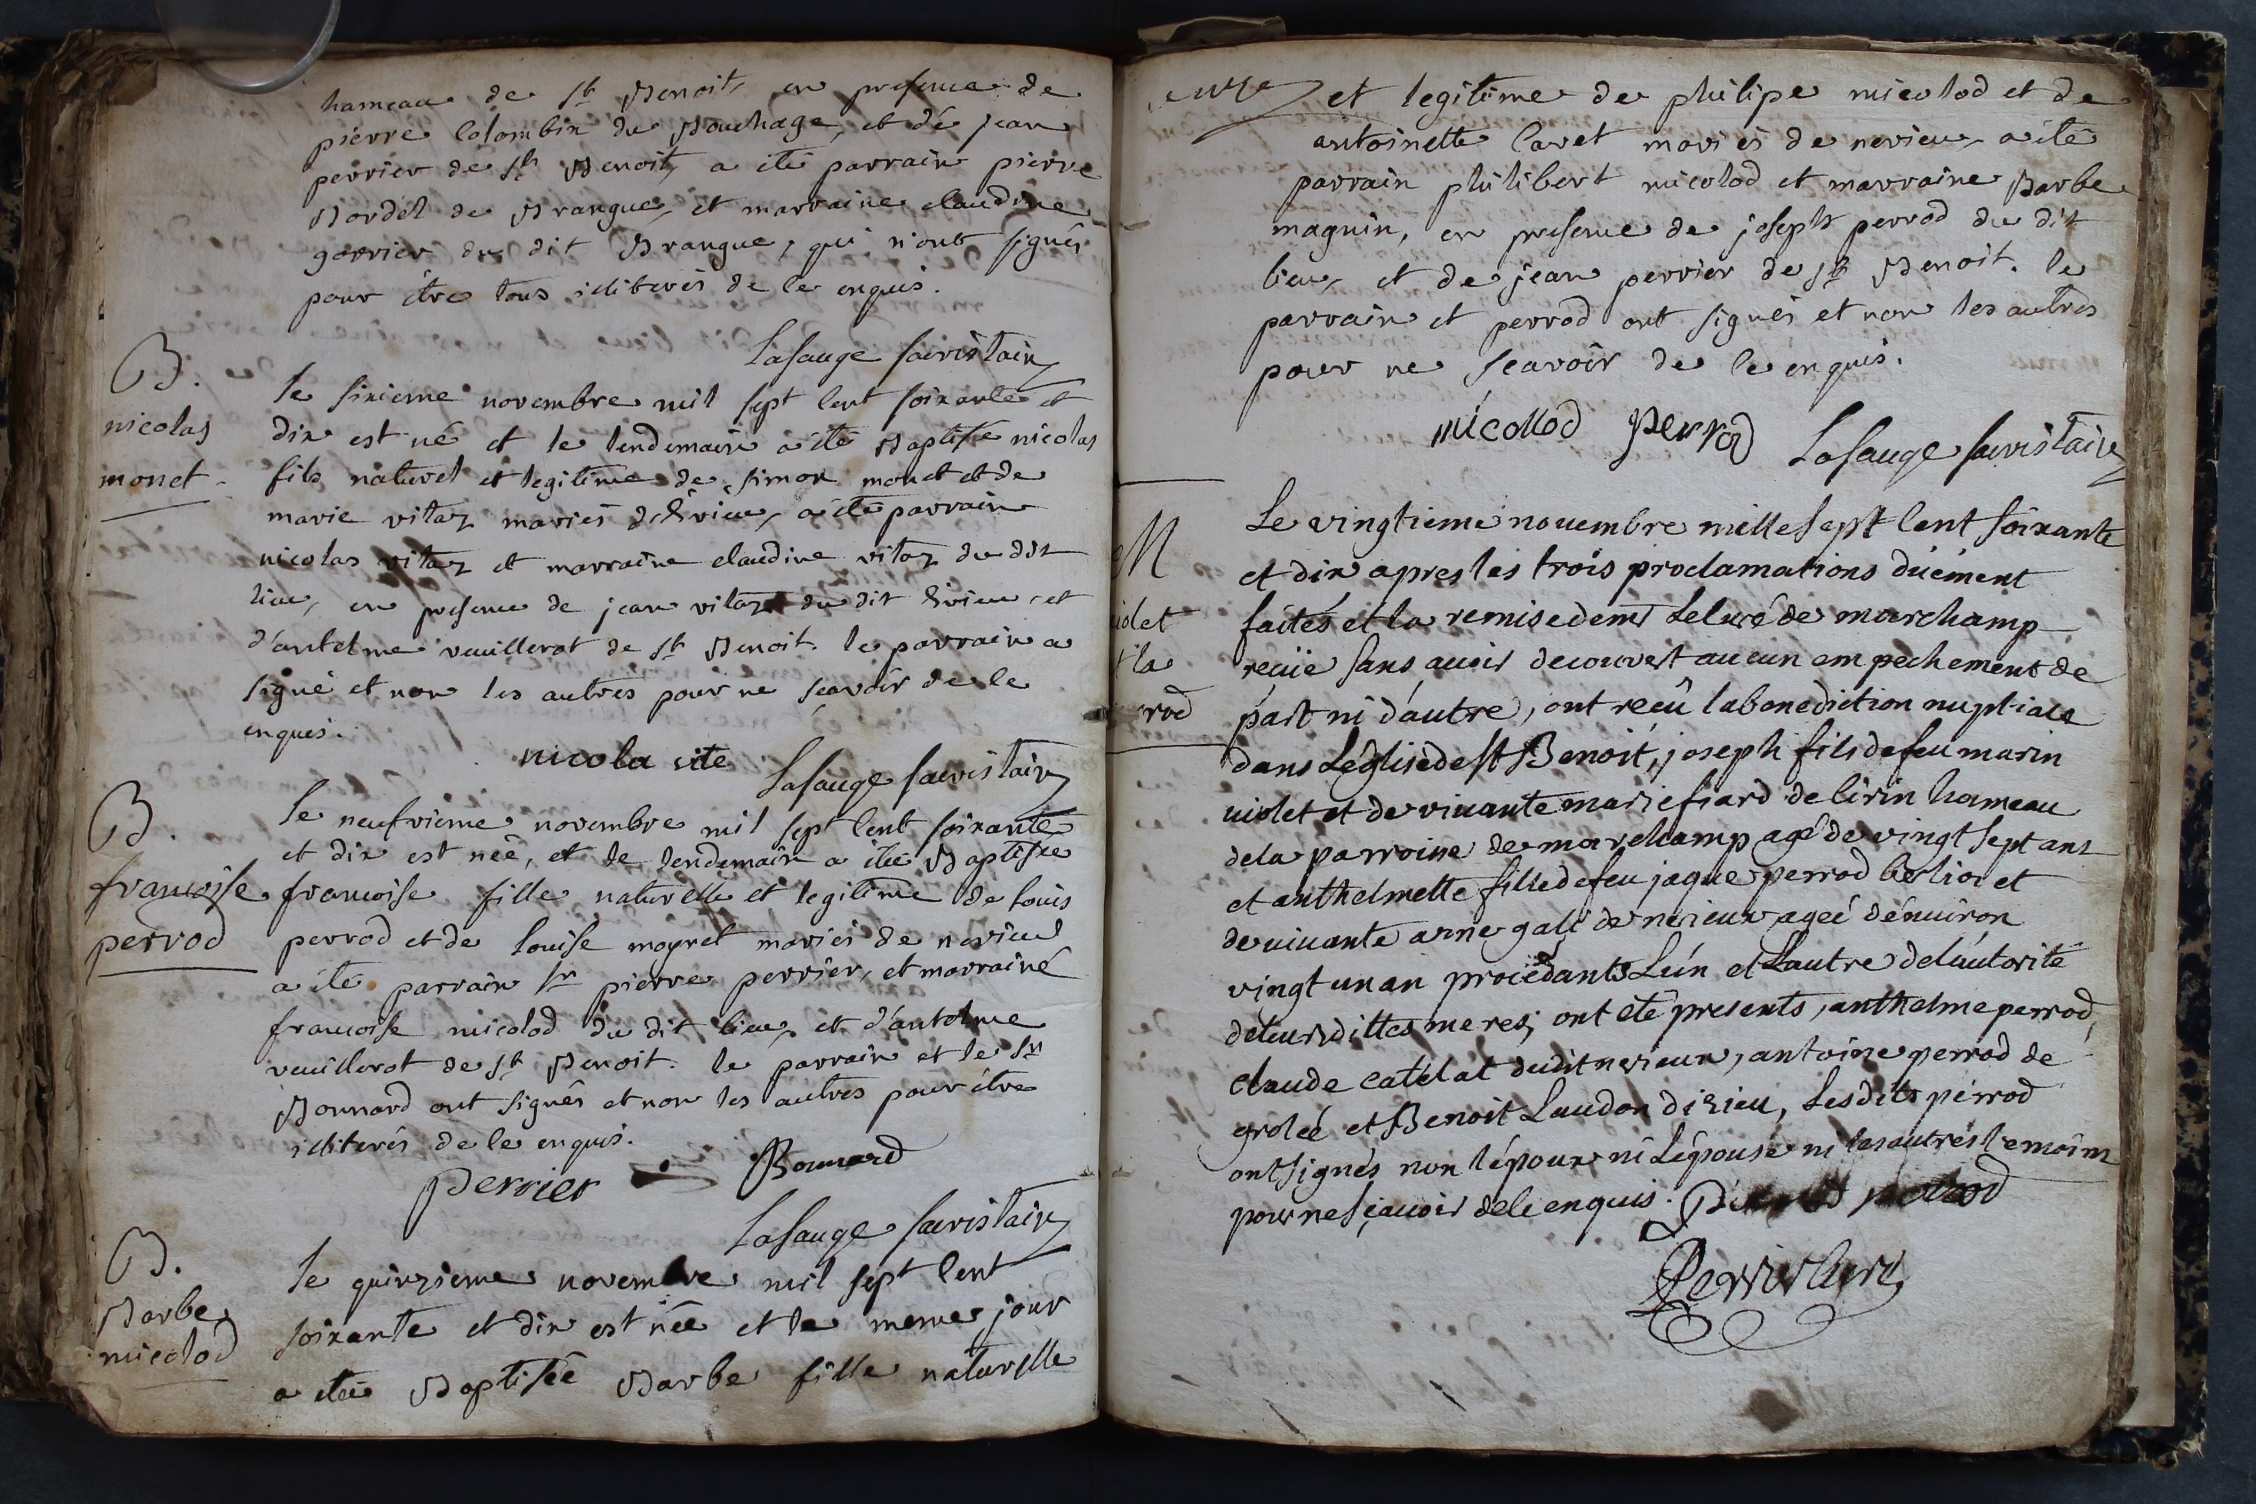 hameau de st Benoit, en presence de
pierre Colombin du Bouchage, et dé jean
perrier de st Benoit, a été parrain pierre
Bordel de Brangue, et marraine claudine
gorrier du dit Brangue, qui n'ont signés
pour être tous illiterés de ce enquis.
Lasauge sacristain
B.
nicolas
monet
le sixieme novembre mil sept cent soixante et
dix est né et le lendemain a été Baptisé nicolas
fils naturel et legitime de simon monet et de
marie vitoz mariés d'Evieu, a été parrain
nicolas vitoz et marraine claudine vitoz du dit
lieu, en presence de jean vitoz du dit Evieu, et
d'antelme veuillerot de st Benoit. le parrain a
signé et non les autres pour ne sçavoir de ce
enquis.
nicola vite
Lasauge sacristain
B.
francoise
perrod
le neufvieme novembre mil sept cent soixante
et dix est néé, et le lendemain a été Baptisée
francoise fille naturelle et legitime de louis
perrod et de louise moyret mariés de nerieu
a été parrain sr pierre perrier, et marraine
francoise micolod du dit lieu, et d'antelme
veuillerot de st Benoit. le parrain et le sr
Bonnard ont signés et non les autres pour être
illiterés de ce enquis.
Perrier Bonnard
Lasauge sacristain
B.
Barbe
micolod
le quinzieme novembre mil sept cent
soixante et dix est néé et le meme jour
a été Baptisée Barbe fille naturelle
et legitime de philipe micolod et de
antoinette Cavet mariés de nerieu, a été
parrain philibert micolod et marraine Barbe
magnin, en presence de joseph perrod du dit
lieu, et de jean perrier de st Benoit. le
parrain et perrod ont signés et non les autres
pour ne sçavoir de ce enquis.
micollod Perrod Lasauge sacristain
M
violet
et la
perrod
Le vingtieme nouembre mille sept cent soixante
et dix apres les trois proclamations düement
faites et la remise de mr le curé de marchamp
recüe sans auoir decouvert aucun empechement de
part ni d'autre, ont recû la benediction nuptiale
dans L'eglise de st Benoit, joseph fils de feu marin
uiolet et de viuante marie fiard de cirin hameau
de la parroisse de marchamp agé de vingt sept ans
et anthelmette fille de feu jaque perrod berlioz et
de uiuante anne gali de nerieux ageé d'enuiron
vingt un an procedants L'un et L'autre de l'autorité
de leurs dittes meres; ont été presents, anthelme perrod,
claude catelat du dit nerieux, antoine perrod de
groleé et Benoit Laudon d'izieu, Les dits perrod
ont signés non l'époux ni L'épouse ni les autres temoins
pour ne sçauoir de ce enquis. perrod
Perrier curé